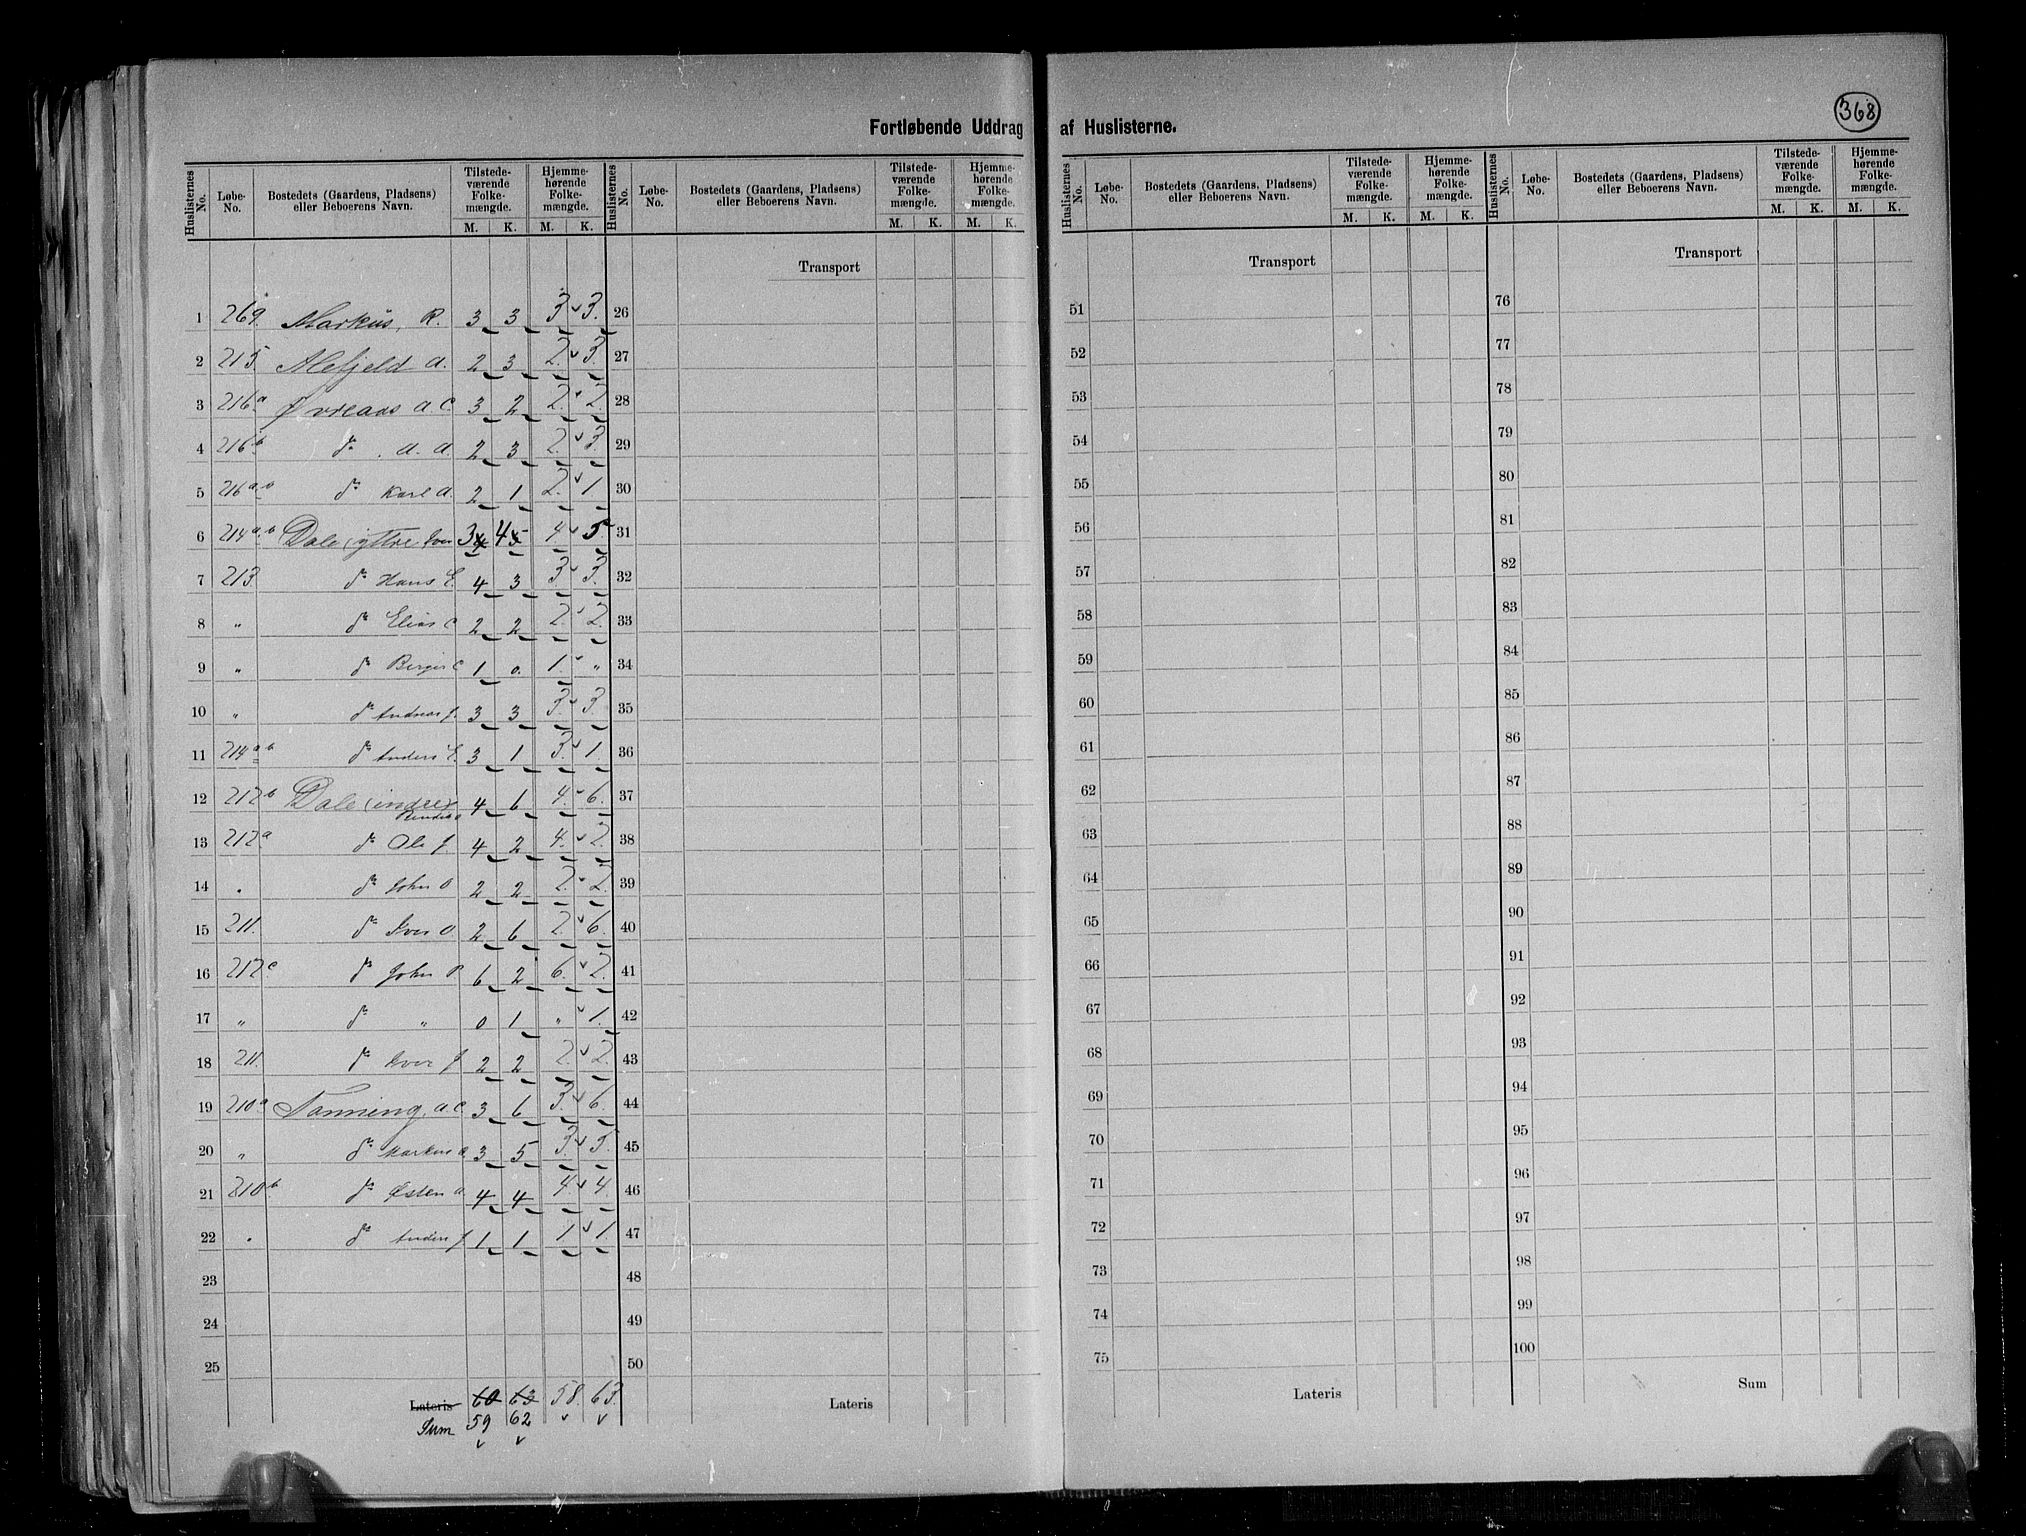 368
Fortløbende Uddrag af Huslisterne.
Huslisternes No. Løbe-No. Bostedets (Gaardens, Pladsens) eller Beboerens Navn. Tilstedeværende Folkemængde. M. K. Hjemmehørende Folkemængde. M. K.
Huslisternes No. Løbe-No. Bostedets (Gaardens, Pladsens) eller Beboerens Navn. Tilstedeværende Folkemængde. M. K. Hjemmehørende Folkemængde. M. K.
Huslisternes No. Løbe-No. Bostedets (Gaardens, Pladsens) eller Beboerens Navn. Tilstedeværende Folkemængde. M. K. Hjemmehørende Folkemængde. M. K.
Huslisternes No. Løbe-No. Bostedets (Gaardens, Pladsens) eller Beboerens Navn. Tilstedeværende Folkemængde. M. K. Hjemmehørende Folkemængde. M. K.
Transport Transport Transport
1 269. Markus, R. 3 3 3 3. 26 51 76
2 215. Alefjeld A. 2 3 2. 3. 27 52 77
3 216a Øvreaas A. C. 3 2 2. 2. 28 53 78
4 216b do. A. A. 2 3 2. 3. 29 54 79
5 216a.b do Karl A. 2 1 2. 1. 30 55 80
6 214a.b Dale (yttre Iver 3 4 4 5 4 5. 31 56 81
7 213. do Hans E. 4 3 3. 3. 32 57 82
8 " do Elias C 2 2 2. 2. 33 58 83
9 " do Berger C 1 0. 1. " 34 59 84
10 " do Andreas J. 3 3 3. 3. 35 60 85
11 214a.b do Anders E. 3 1 3. 1. 36 61 86
12 212b Dale (indre) 4 6 4. 6. 37 62 87
13 212a do Ole J. 4 2 4. 2. 38 63 88
14 " do John O 2 2 2. 2. 39 64 89
15 211. do Iver O 2 6 2. 6. 40 65 90
16 212c do John P. 6 2 6. 2. 41 66 91
17 " do " 0 1 " 1. 42 67 92
18 211. do Iver J. 2 2 2. 2. 43 68 93
19 210a Nanning, A. C. 3 6 3. 6. 44 69 94
20 " do Markus A. 3 5 3. 5. 45 70 95
21 210b do Østen A. 4 4 4. 4. 46 71 96
22 " do Anders J. 1 1 1. 1. 47 72 97
23 48 73 98
24 49 74 99
25 50 75 100
Lateris 60 63 58. 63. Lateris Lateris Sum
Sum 59 62